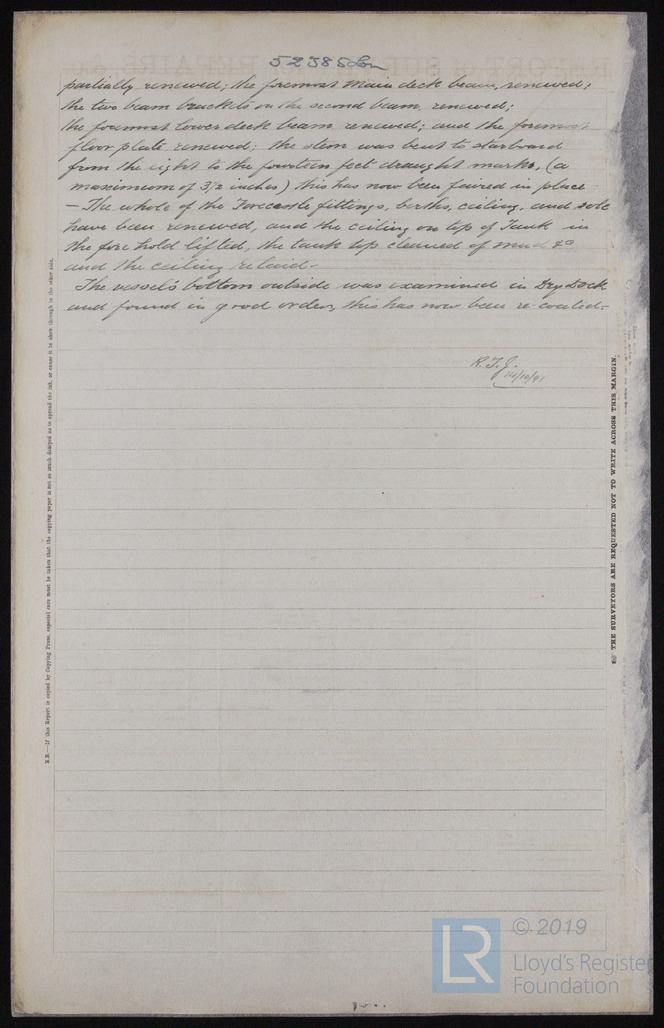 52385 Lon
partially renewed; the foremost Main deck beam, renewed;
the two beam brackets on the second beam, renewed;
the foremost lower deck beam, renewed; and the foremost
floor plate renewed; the stem was bent to starboard
from the eight to the fourteen feet draught marks, (a
maximum of 3 1/2 inches) this has now been faired in place
— The whole of the Forecastle fittings, berths, ceiling, and sole
have been renewed, and the ceiling on top of Tank in
the fore hold lifted, the tank top cleaned of mud &c
and the ceiling relaid.
The vessel's bottom outside was examined in Dry Dock
and found in good order, this has now been re coated.
R.T.J.
14/10/91
N.B.—If this Report is copied by Copying Press, especial care must be taken that the copying paper is not so much damped as to spread the ink, or cause it to show through to the other side.
THE SURVEYORS ARE REQUESTED NOT TO WRITE ACROSS THIS MARGIN.
LR
© 2019
Lloyd's Register
Foundation